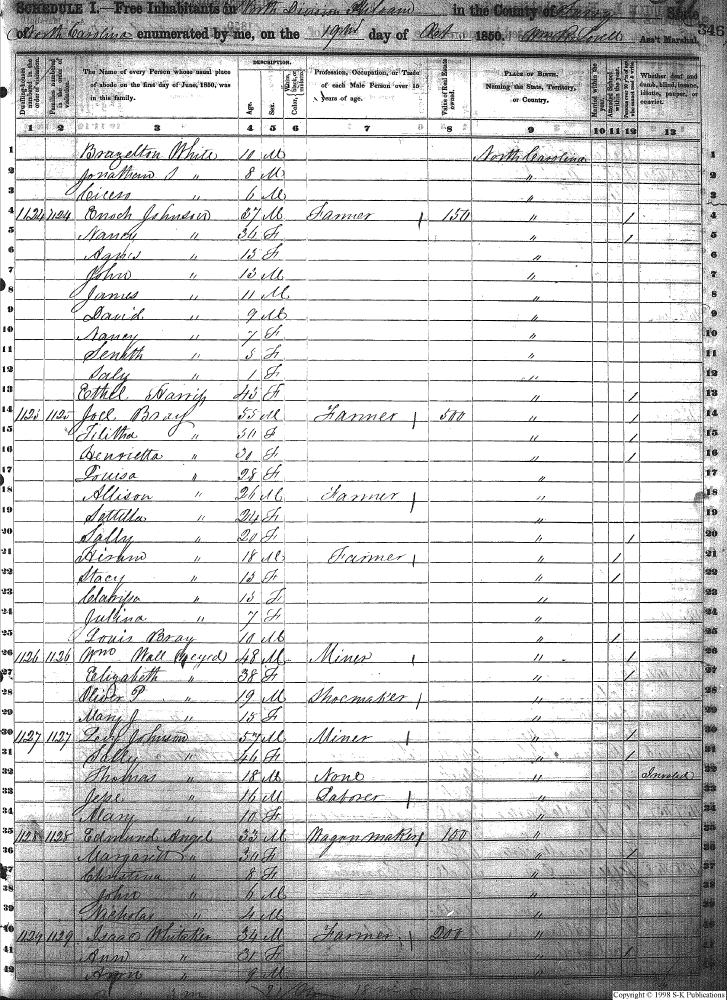 SCHEDULE I.—Free Inhabitants in North Division in the County of Surry State
of North Carolina enumerated by me, on the day of Oct 1850. Ass't Marshal.
345
Dwelling-houses numbered in the order of visitation.
Families numbered in the order of visitation.
The Name of every Person whose usual place of abode on the first day of June, 1850, was in this family.
DESCRIPTION.
Age.
Sex.
Color, White, black, or mulatto.
Profession, Occupation, or Trade of each Male Person over 15 years of age.
Value of Real Estate owned.
PLACE OF BIRTH. Naming the State, Territory, or Country.
Married within the year.
Attended School within the year.
Whether deaf and dumb, blind, insane, idiotic, pauper, or convict.
1 2 3 4 5 6 7 8 9 10 11 12 13
1 Brazelton White 10 M North Carolina 1
2 Jonathan S " 8 M " 2
3 Cicero " 6 M " 3
4 1124 1124 Enoch Johnson 37 M Farmer 150 " / 4
5 Nancy " 36 F " / 5
6 Agnes " 13 F " 6
7 John " 13 M " 7
8 James " 11 M " 8
9 David " 9 M " 9
10 Nancy " 7 F " 10
11 Senith " 5 F " 11
12 Saly " 1 F " 12
13 Ethel Harris 45 F / 13
14 1125 1125 Joel Bray 55 M Farmer 500 " / 14
15 " F " / 15
16 Henrietta " 30 F " / 16
17 Louisa " 28 F " 17
18 Allison " 26 M Farmer " 18
19 " 24 F " 19
20 Sally " 20 F " / 20
21 Hiram " 18 M Farmer " / 21
22 Stacy " 13 F " / 22
23 Clarissa " 13 F " 23
24 " 7 F " 24
25 Louis Bray 10 M / 25
26 1126 1126 Wm Wall 48 M Miner " / 26
27 Elizabeth " 38 F " / 27
28 Oliver P. " 19 M Shoemaker " 28
29 Mary J. " 15 F " 29
30 1127 1127 Levi Johnson 57 M Miner " / 30
31 Sally " 46 F " / 31
32 Thomas " 18 M None " 32
33 Jesse " 16 M Laborer " 33
34 Mary " 10 F " 34
35 1128 1128 Edmund Angel 33 M Wagon maker 100 " 35
36 Margarett " F " / 36
37 Christena " 8 F " 37
38 John " 6 M " 38
39 Nicholas " 4 M " 39
40 1129 1129 Isaac Whitaker 34 M Farmer 200 " 40
41 Ann " 31 F " / 41
42 " 9 M " 42
Copyright © 1998 S-K Publications